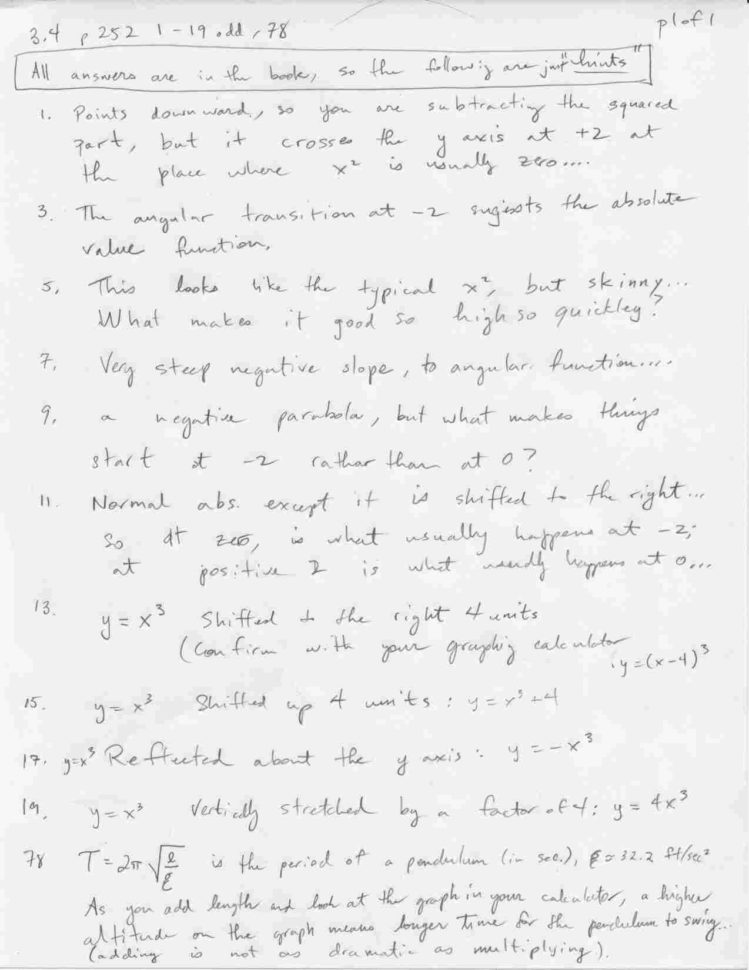 p1of1
3.4 p 252 1-19 odd, 78
All answers are in the book, so the followig are just "hints"
1. Points downward, so you are subtracting the squared
part, but it crosses the y axis at +2 at
the place where x² is usually zero....
3. The angular transition at -2 sugists the absolute
value function.
5. This looks like the typical x², but skinny...
What makes it good so high so quickley?
7. Very steep negative slope, to angular function....
9. a negative parabola, but what makes things
start at -2 rathar than at 0?
11. Normal abs. except it is shifted to the right...
So at zero, is what usually happens at -2;
at positive 2 is what usually happens at 0...
13. y = x³ Shifted to the right 4 units
(Confirm with your graphig calculator
: y=(x-4)³
15. y = x³ Shifted up 4 units : y = x³+4
17. y=x³ Reflected about the y axis : y = -x³
19. y = x³ Vertically stretched by a factor of 4: y = 4x³
78 T = 2π √(l/g) is the period of a pendulum (in sec.), g = 32.2 ft/sec²
As you add length and look at the graph in your calculator, a higher
altitude on the graph means longer time for the pendulum to swing..
(adding is not as dramatic as multiplying).